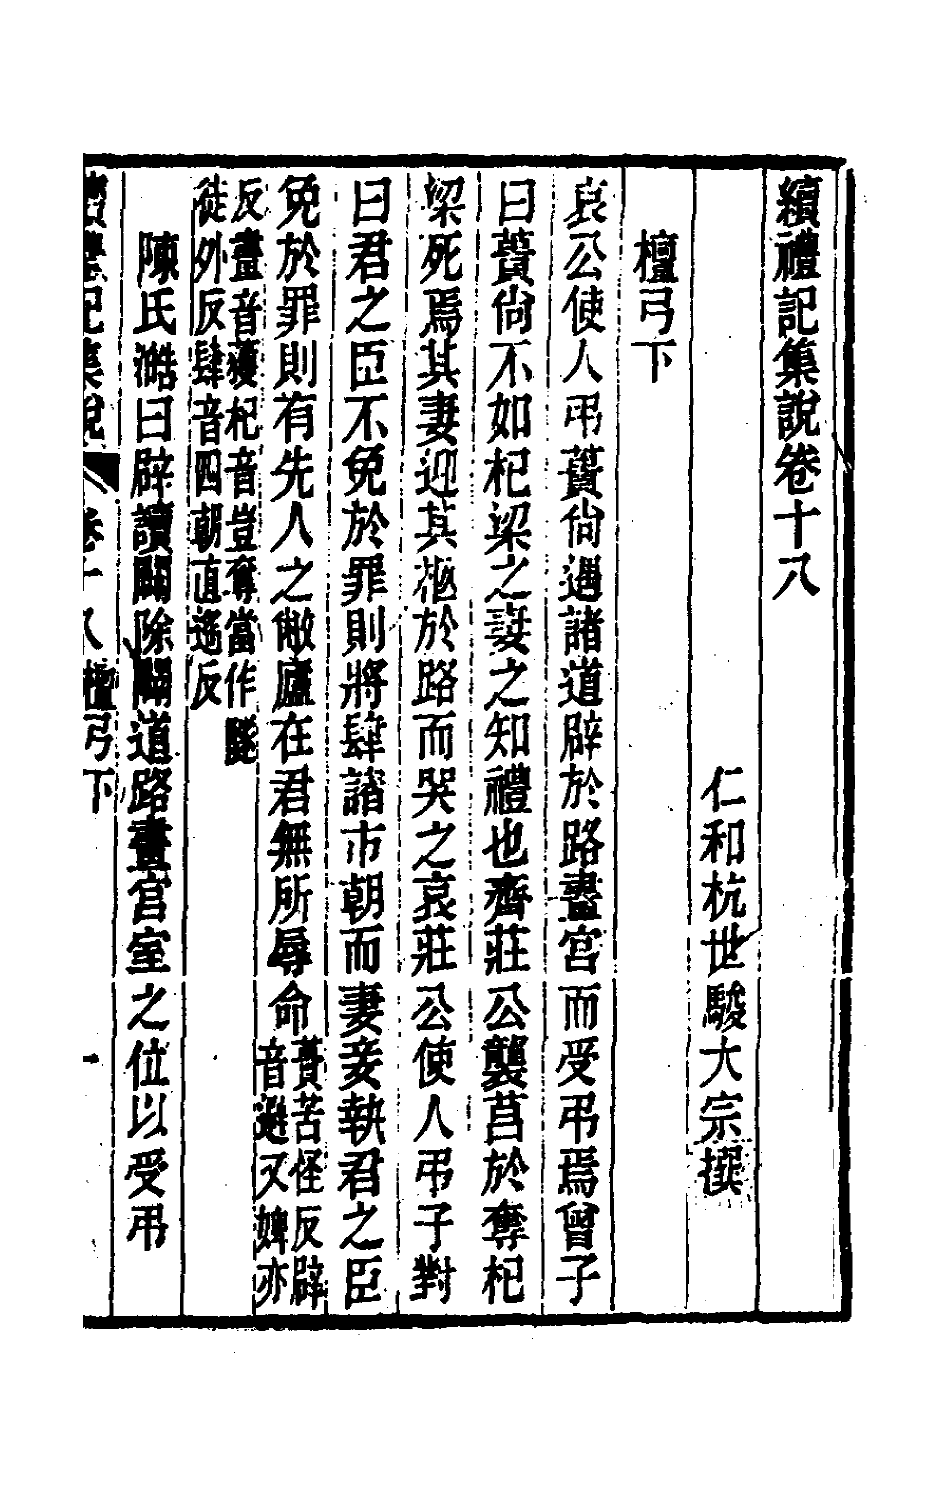 續禮記集說卷十八
仁和杭世駿大宗撰
檀弓下
哀公使人弔蕢尙遇諸道辟於路畫宮而受弔焉曾子
曰蕢尙不如杞梁之妻之知禮也齊莊公襲莒於奪杞
梁死焉其妻迎其柩於路而哭之哀莊公使人弔子對
曰君之臣不免於罪則將肆諸市朝而妻妾執君之臣
免於罪則有先人之敝廬在君無所辱命蕢苦怪反辟
音避又婢亦
反畫音獲杞音豈奪當作隧
徒外反肆音四朝直遙反
陳氏澔曰辟讀闢除闢道路畫宮室之位以受弔
續禮記集說 卷十八檀弓下 一